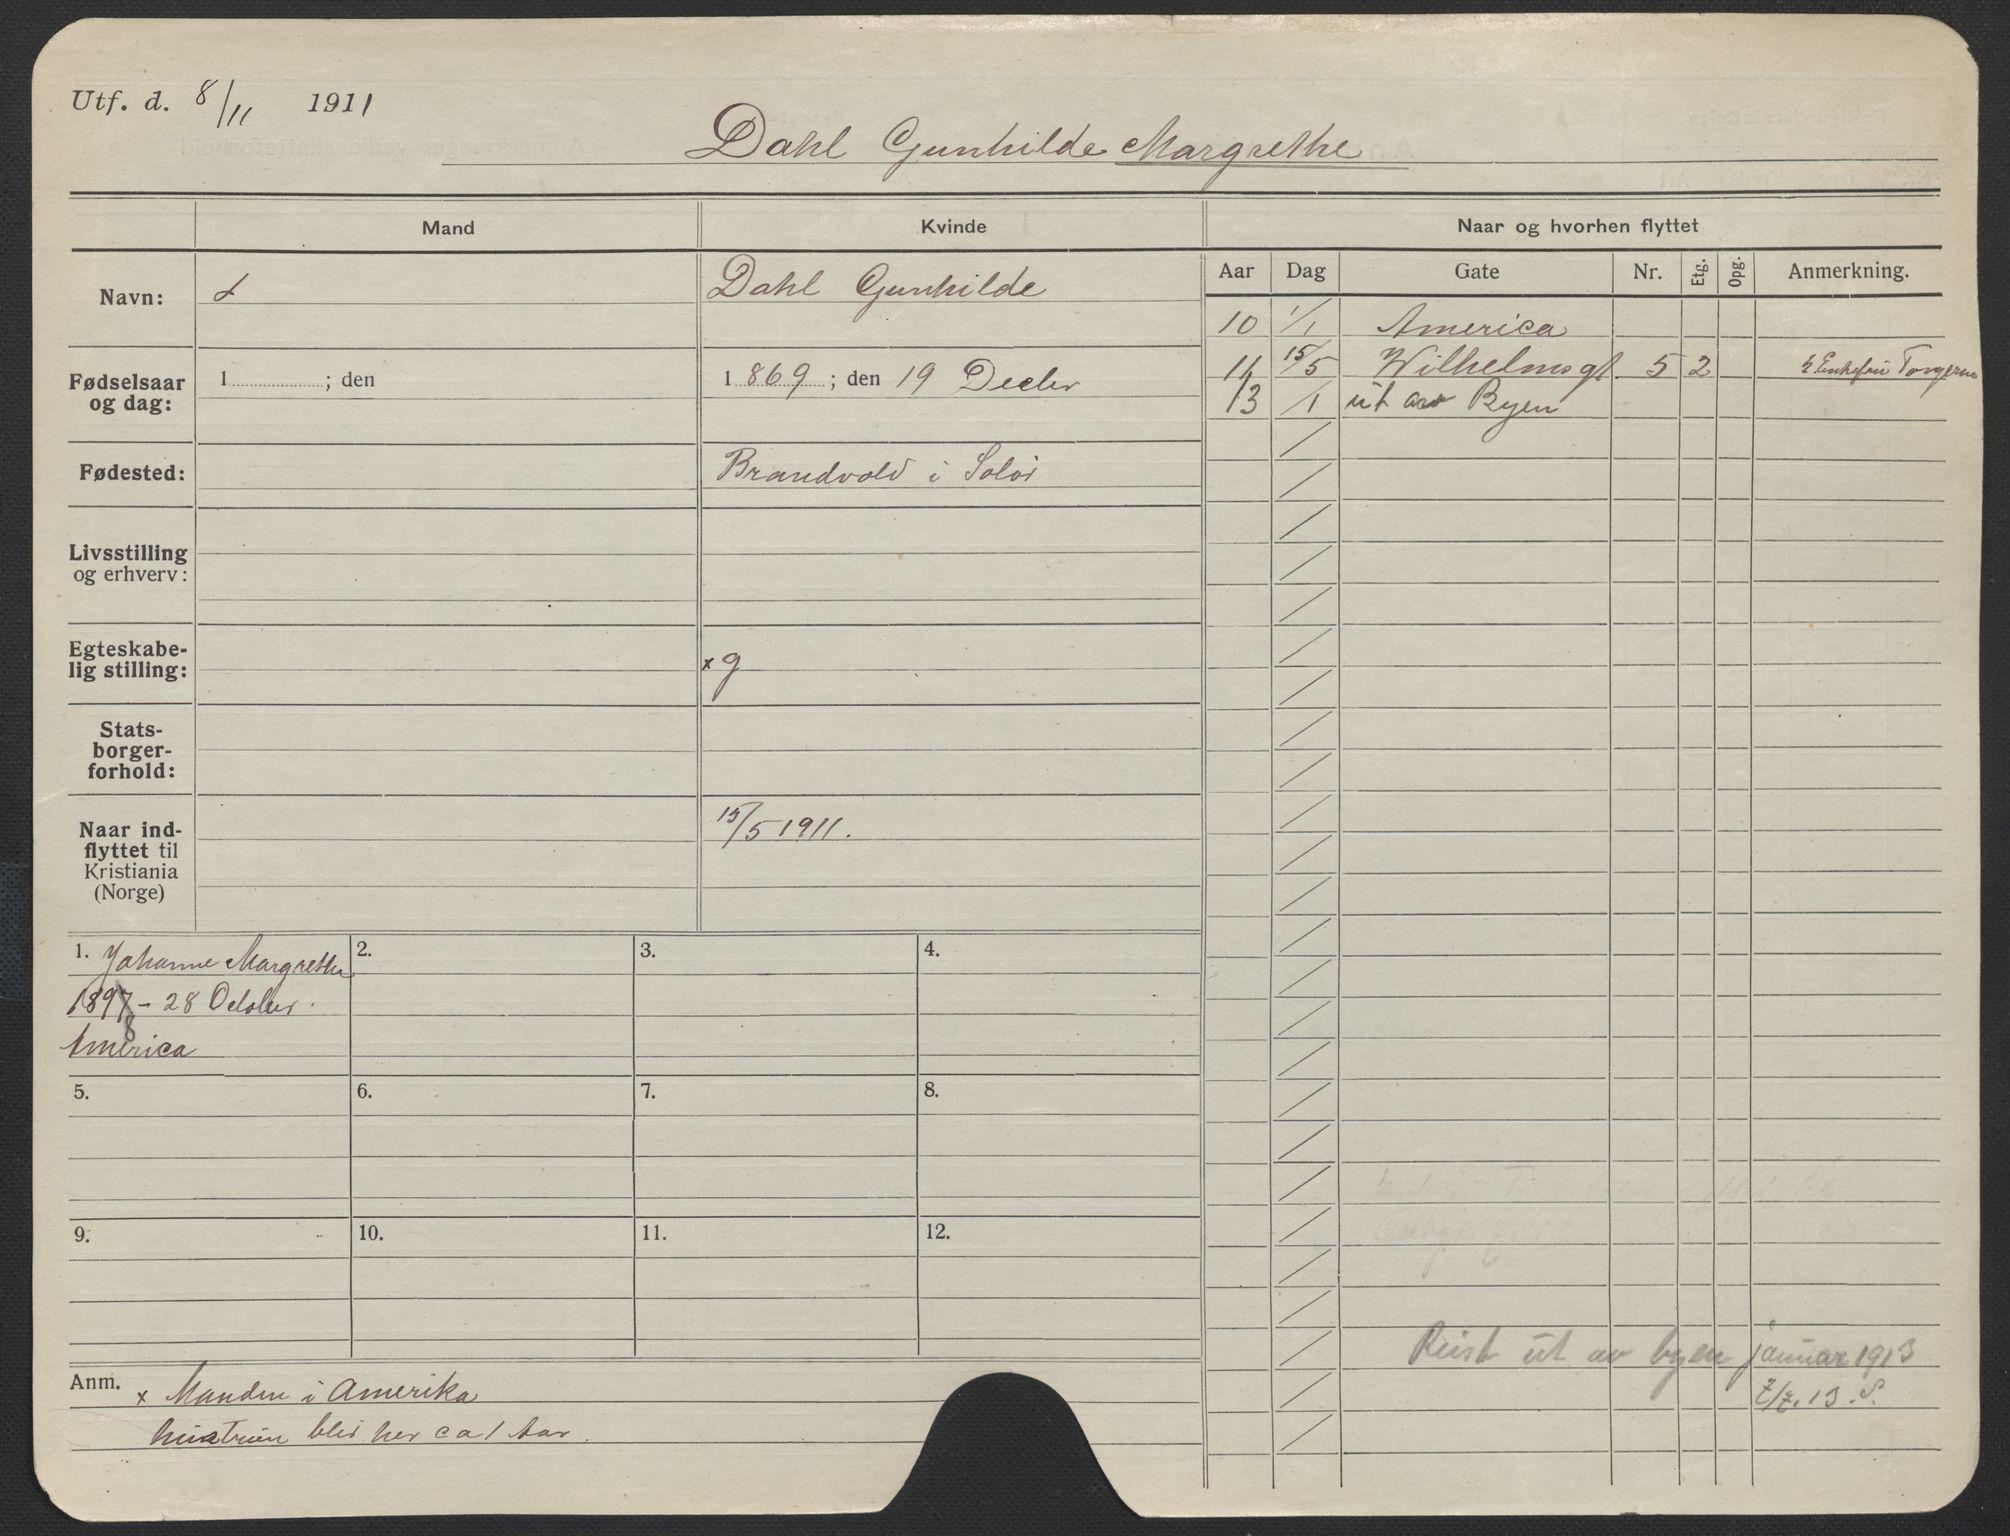 Utf. d. 8/11 1911
Dahl Gunhilde Margrethe
Mand
Kvinde
Naar og hvorhen flyttet
Navn:
Dahl Gunhilde
Fødselsaar
og dag:
1 ; den
1 869 ; den 19 Decbr
Fødested:
Brandvold i Solør
Livsstilling
og erhverv:
Egteskabe-
lig stilling:
x g
Stats-
borger-
forhold:
Naar ind-
flyttet til
Kristiania
(Norge)
15/5 1911.
Aar Dag Gate Nr. Etg. Opg. Anmerkning.
10 1/1 America
11 15/5 Wilhelmsgt. 5 2
13 /1 ut av Byen
Reist ut av byen januar 1913
1. Johanne Margrethe
1897 - 28 October.
8
America
2.
3.
4.
5.
6.
7.
8.
9.
10.
11.
12.
Anm. x Manden i Amerika
hustruen blir her ca 1 Aar.